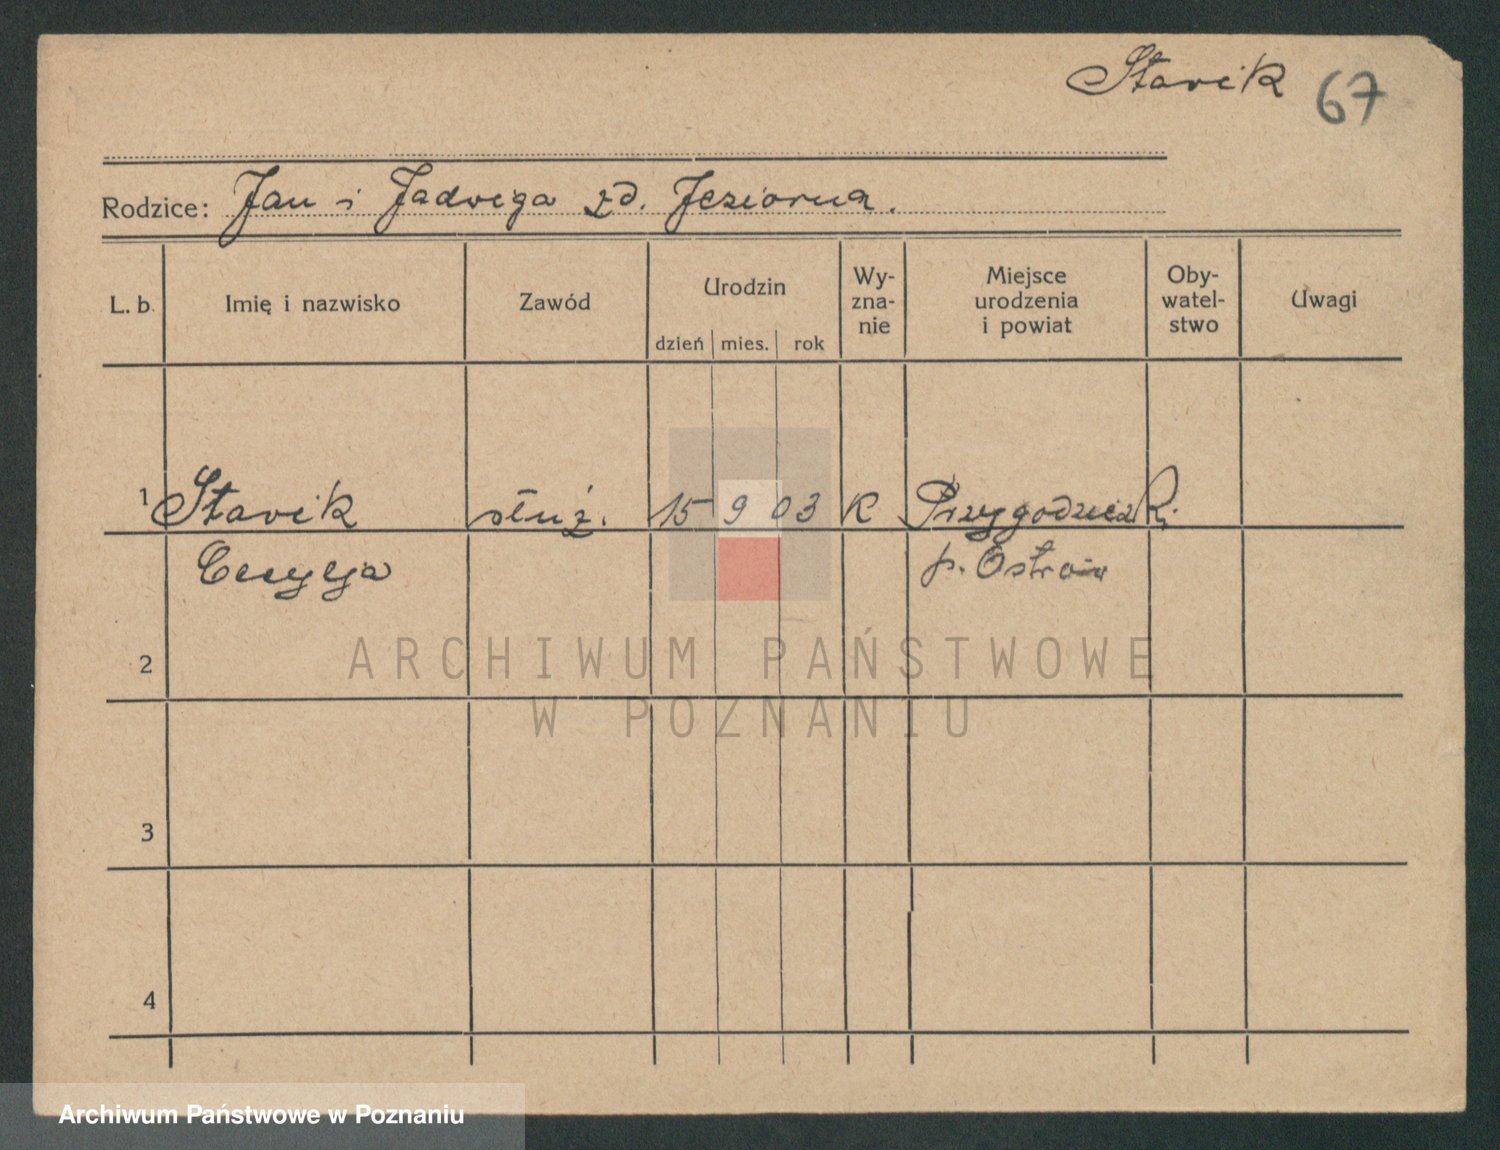 Stavik 67
Rodzice: Jan i Jadwiga zd. Jeziorna.
L. b. Imię i nazwisko Zawód Urodzin Wy-zna-nie Miejsce urodzenia i powiat Oby-watel-stwo Uwagi
dzień mies. rok
1 Stavik służ. 15 9 03 K Przygodzice
Cecylja p. Ostrów
2
ARCHIWUM PAŃSTWOWE
W POZNANIU
3
4
Archiwum Państwowe w Poznaniu